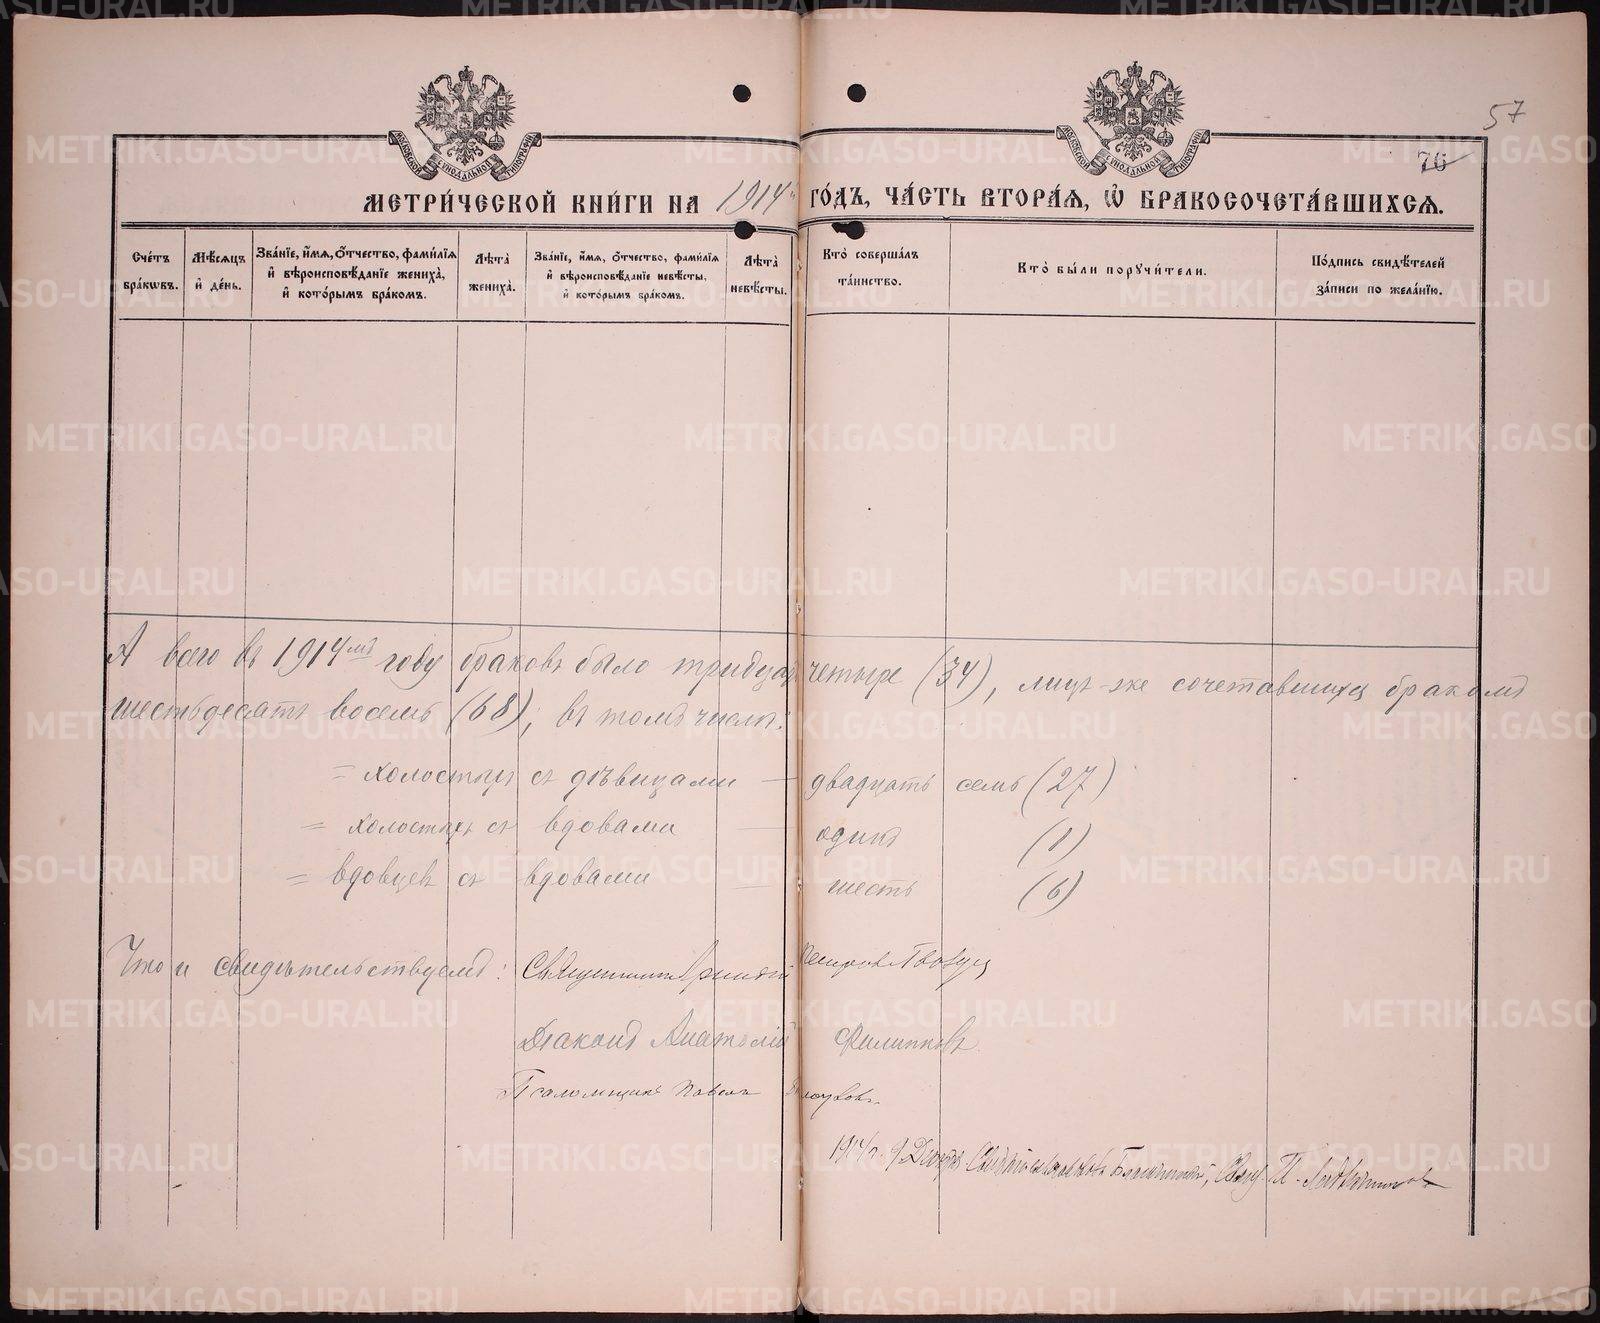 57
76
МОСКОВСКОЙ СѴНОДАЛЬНОЙ ТИПОГРАФІИ
МОСКОВСКОЙ СѴНОДАЛЬНОЙ ТИПОГРАФІИ
МЕТРИ́ЧЕСКОЙ КНИ́ГИ НА 1914й ГО́ДЪ, ЧА́СТЬ ВТОРА́Я, Ѡ҆ БРАКОСОЧЕТА́ВШИХСѦ.
Сче́тъ бра́кѡвъ.
Мѣ́сяцъ и҆ де́нь.
Зва́нїе, и҆́мя, о҆́тчество, фами́лїя и҆ вѣроисповѣ́данїе жениха̀, и҆ кото́рымъ бра́комъ.
Лѣта̀ жениха̀.
Зва́нїе, и҆́мя, о҆́тчество, фами́лїя и҆ вѣроисповѣ́данїе невѣ́сты, и҆ кото́рымъ бра́комъ.
Лѣта̀ невѣ́сты.
Кто̀ соверша́лъ та́инство.
Кто̀ бы́ли порꙋчи́тели.
По́дпись свидѣ́телей за́писи по жела́нїю.
А всего въ 1914мъ году браковъ было тридцать четыре (34), лицъ-же сочетавшихся бракомъ
шестьдесятъ восемь (68), въ томъ числѣ:
= холостыхъ съ дѣвицами — двадцать семь (27)
= холостыхъ съ вдовами — одинъ (1)
= вдовцевъ съ вдовами — шесть (6)
Что и свидѣтельствуемъ: Священникъ
Діаконъ Анатолій Филипповъ
Псаломщикъ Павелъ
1914 г. 9 Декабря Свящ. П.
METRIKI.GASO-URAL.RU